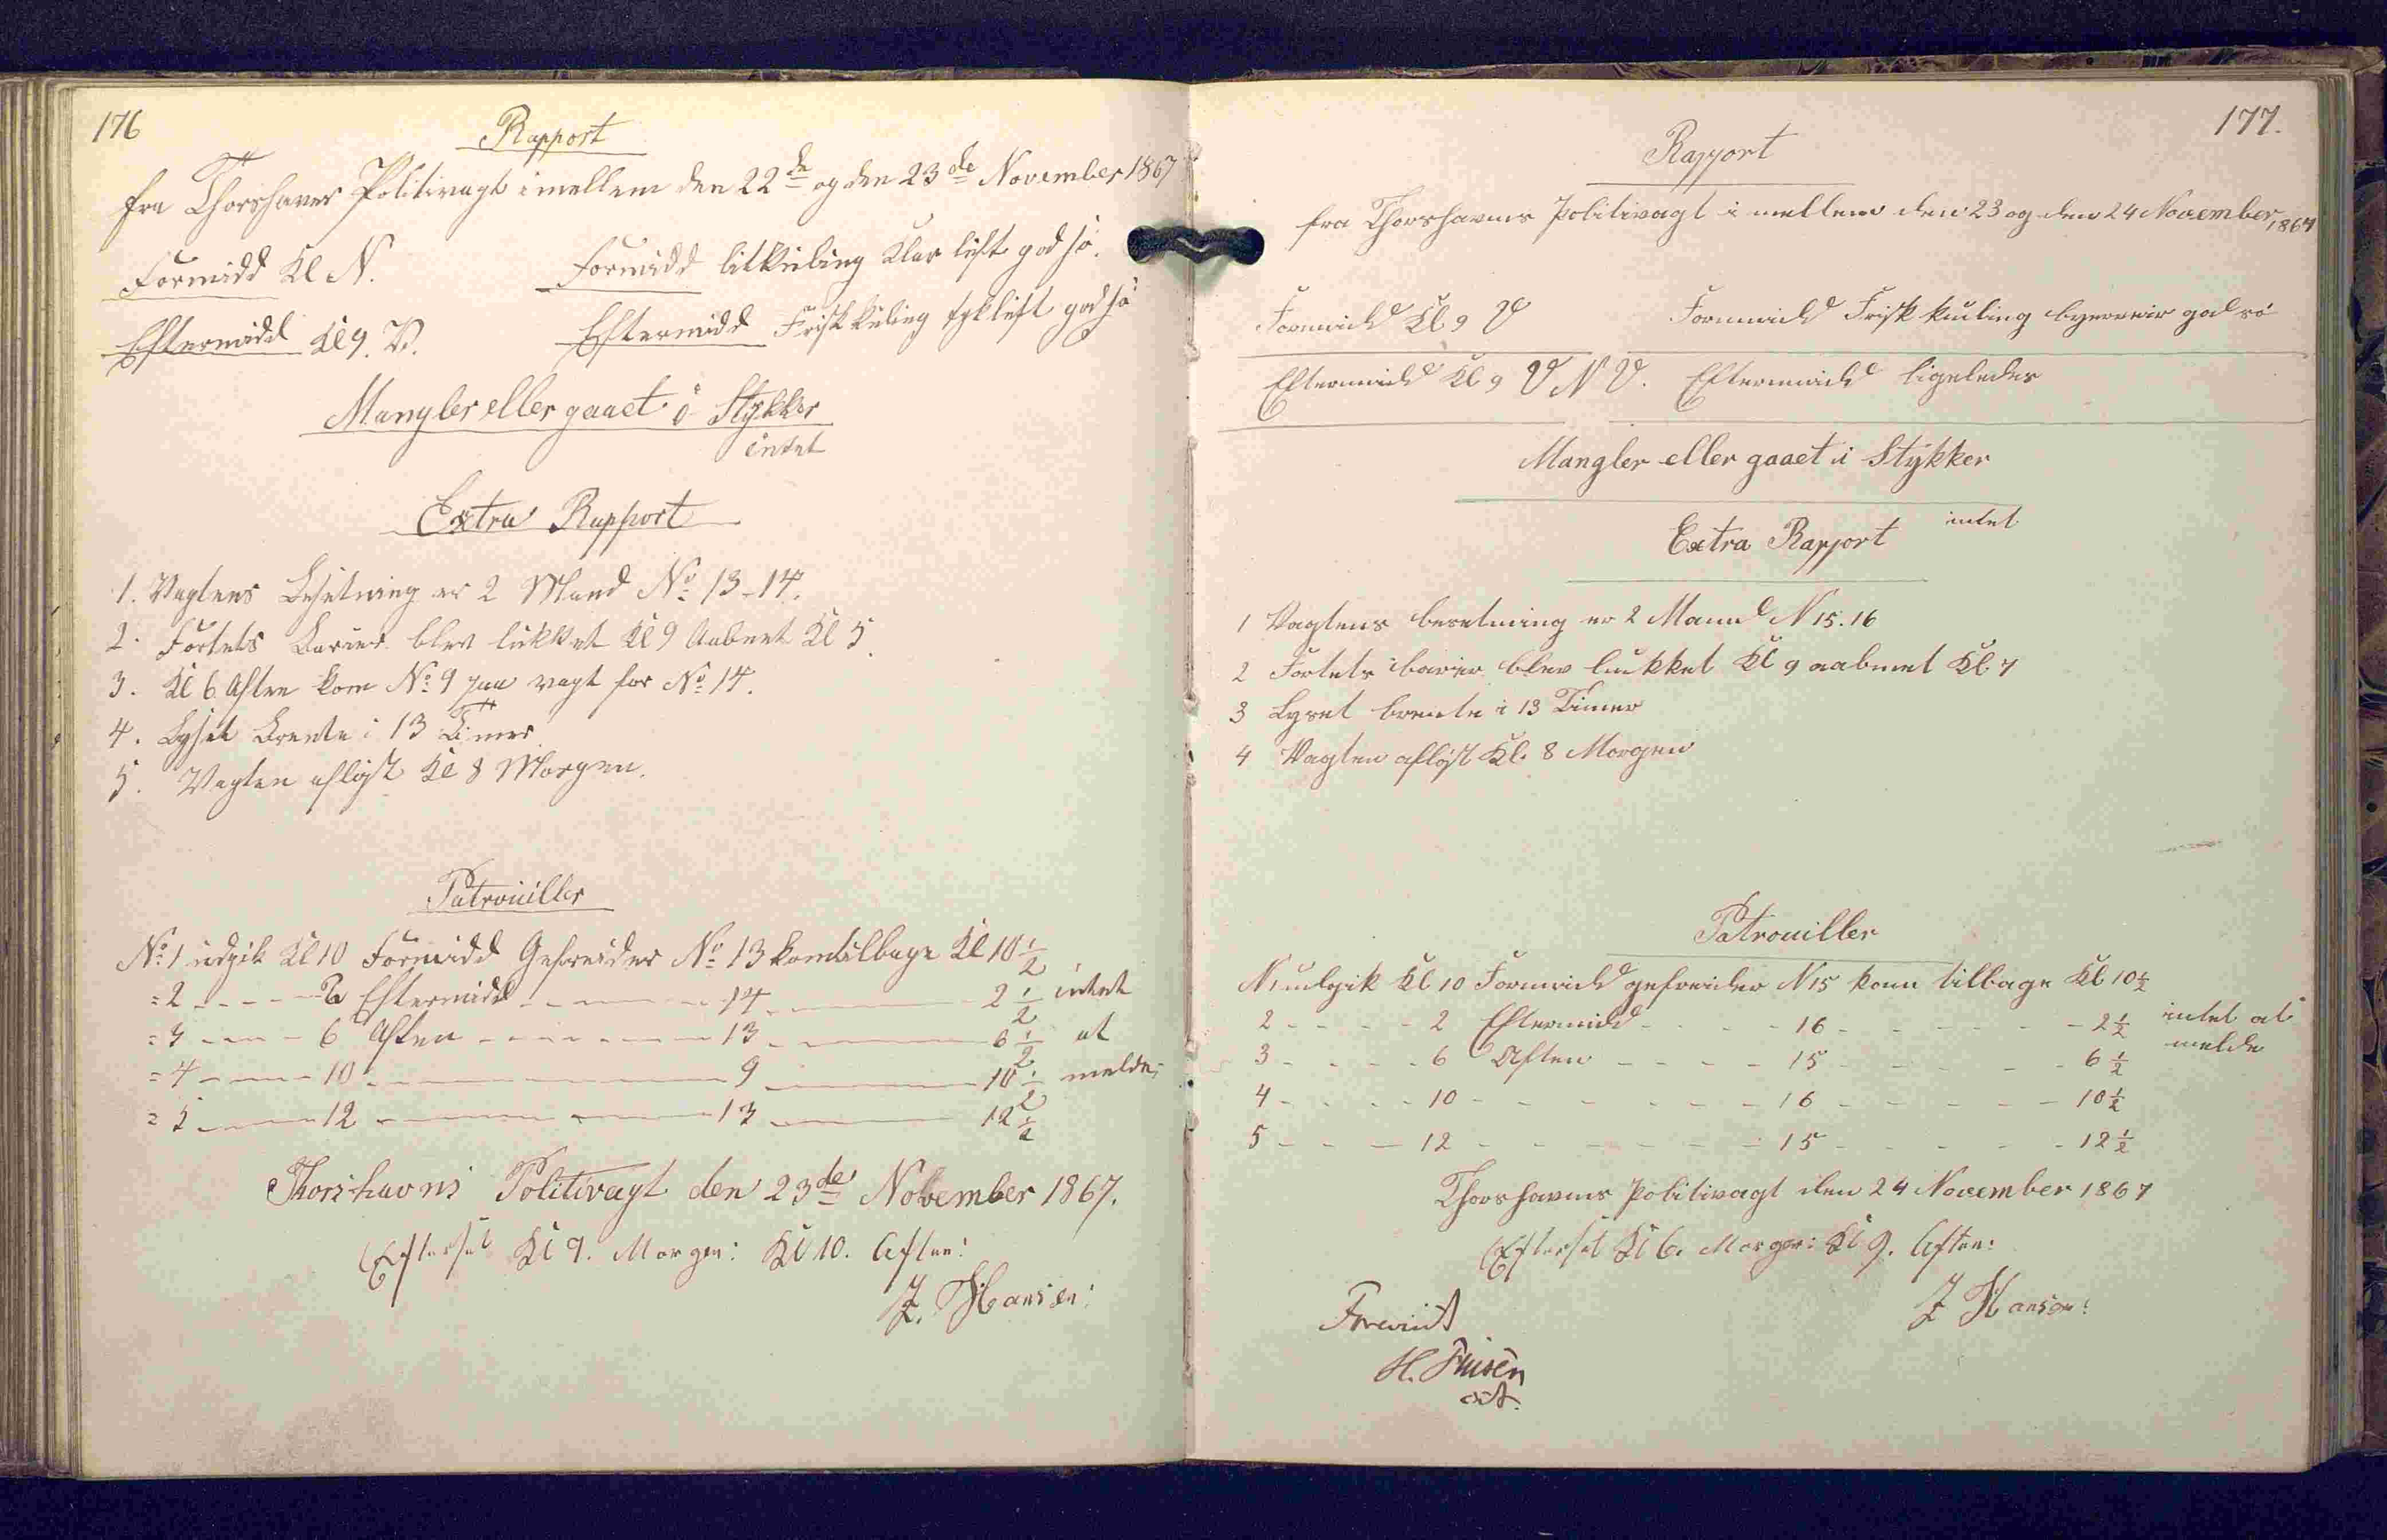 176
Rapport
fra Thorshavns Politivagt imellem den 22de og den 23de November 1867
Formidd Kl N. Formidd litkuling Klar luft god sö.
Eftermidd Kl 9. V. Eftermidd Frisk kuling tyk luft god sö
Mangler eller gaaet i Stykker
intet
Extra Rapport
1. Vagtens Besetning er 2 Mand No 13-14.
2. Fortets Barier blev lukket Kl 9 Aabnet Kl 5.
3. Kl 6 Aften kom No 9 paa vagt for No 14.
4. Lyset Brente i 13 Timer
5. Vagten afløst Kl 8 Morgen.
Patrouiller
No 1 udgik Kl 10 Formidd Gefreider No 13 kom tilbage Kl 10 1/2
= 2 - - - - 2 Eftermidd - - - - 14 - - - - 2 1/2 intet
= 3 - - - 6 Aften - - - - 13 - - - - 6 1/2 at
= 4 - - - 10 - - - - 9 - - - - 10 1/2 melde
= 5 - - - 12 - - - - 13 - - - - 12 1/2
Thorshavns Politivagt den 23de November 1867.
Efterset Kl 9. Morgen: Kl 10. Aften:
Z. Hansen:
177.
Rapport
fra Thorshavns politivagt i mellem den 23 og den 24 November 1867
Formidd Kl 9 V Formidd Frisk kuling byerveir god sö
Eftermidd Kl 9 V N V. Eftermidd ligeledes
Mangler eller gaaet i Stykker
intet
Extra Rapport
1 Vagtens besetning er 2 Mand N 15. 16
2 Fortets barier blev lukket Kl 9 aabnet Kl. 7
3 Lyset brente i 13 Timer
4 Vagten afløst Kl. 8 Morgen
Patrouiller
N 1 udgik Kl 10 Formidd gefreider N 15 kom tilbage Kl 10 1/2
2 - - - - 2 Eftermidd - - - - 16 - - - - 2 1/2 intet at
3 - - - - 6 Aften - - - - 15 - - - - 6 1/2 melde
4 - - - - 10 - - - - 16 - - - - 10 1/2
5 - - - 12 - - - - 15 - - - - 12 1/2
Thorshavns politivagt den 24 November 1867
Efterset Kl 6. Morgen: Kl 9. Aften:
Z Hansen:
Forevist
H.